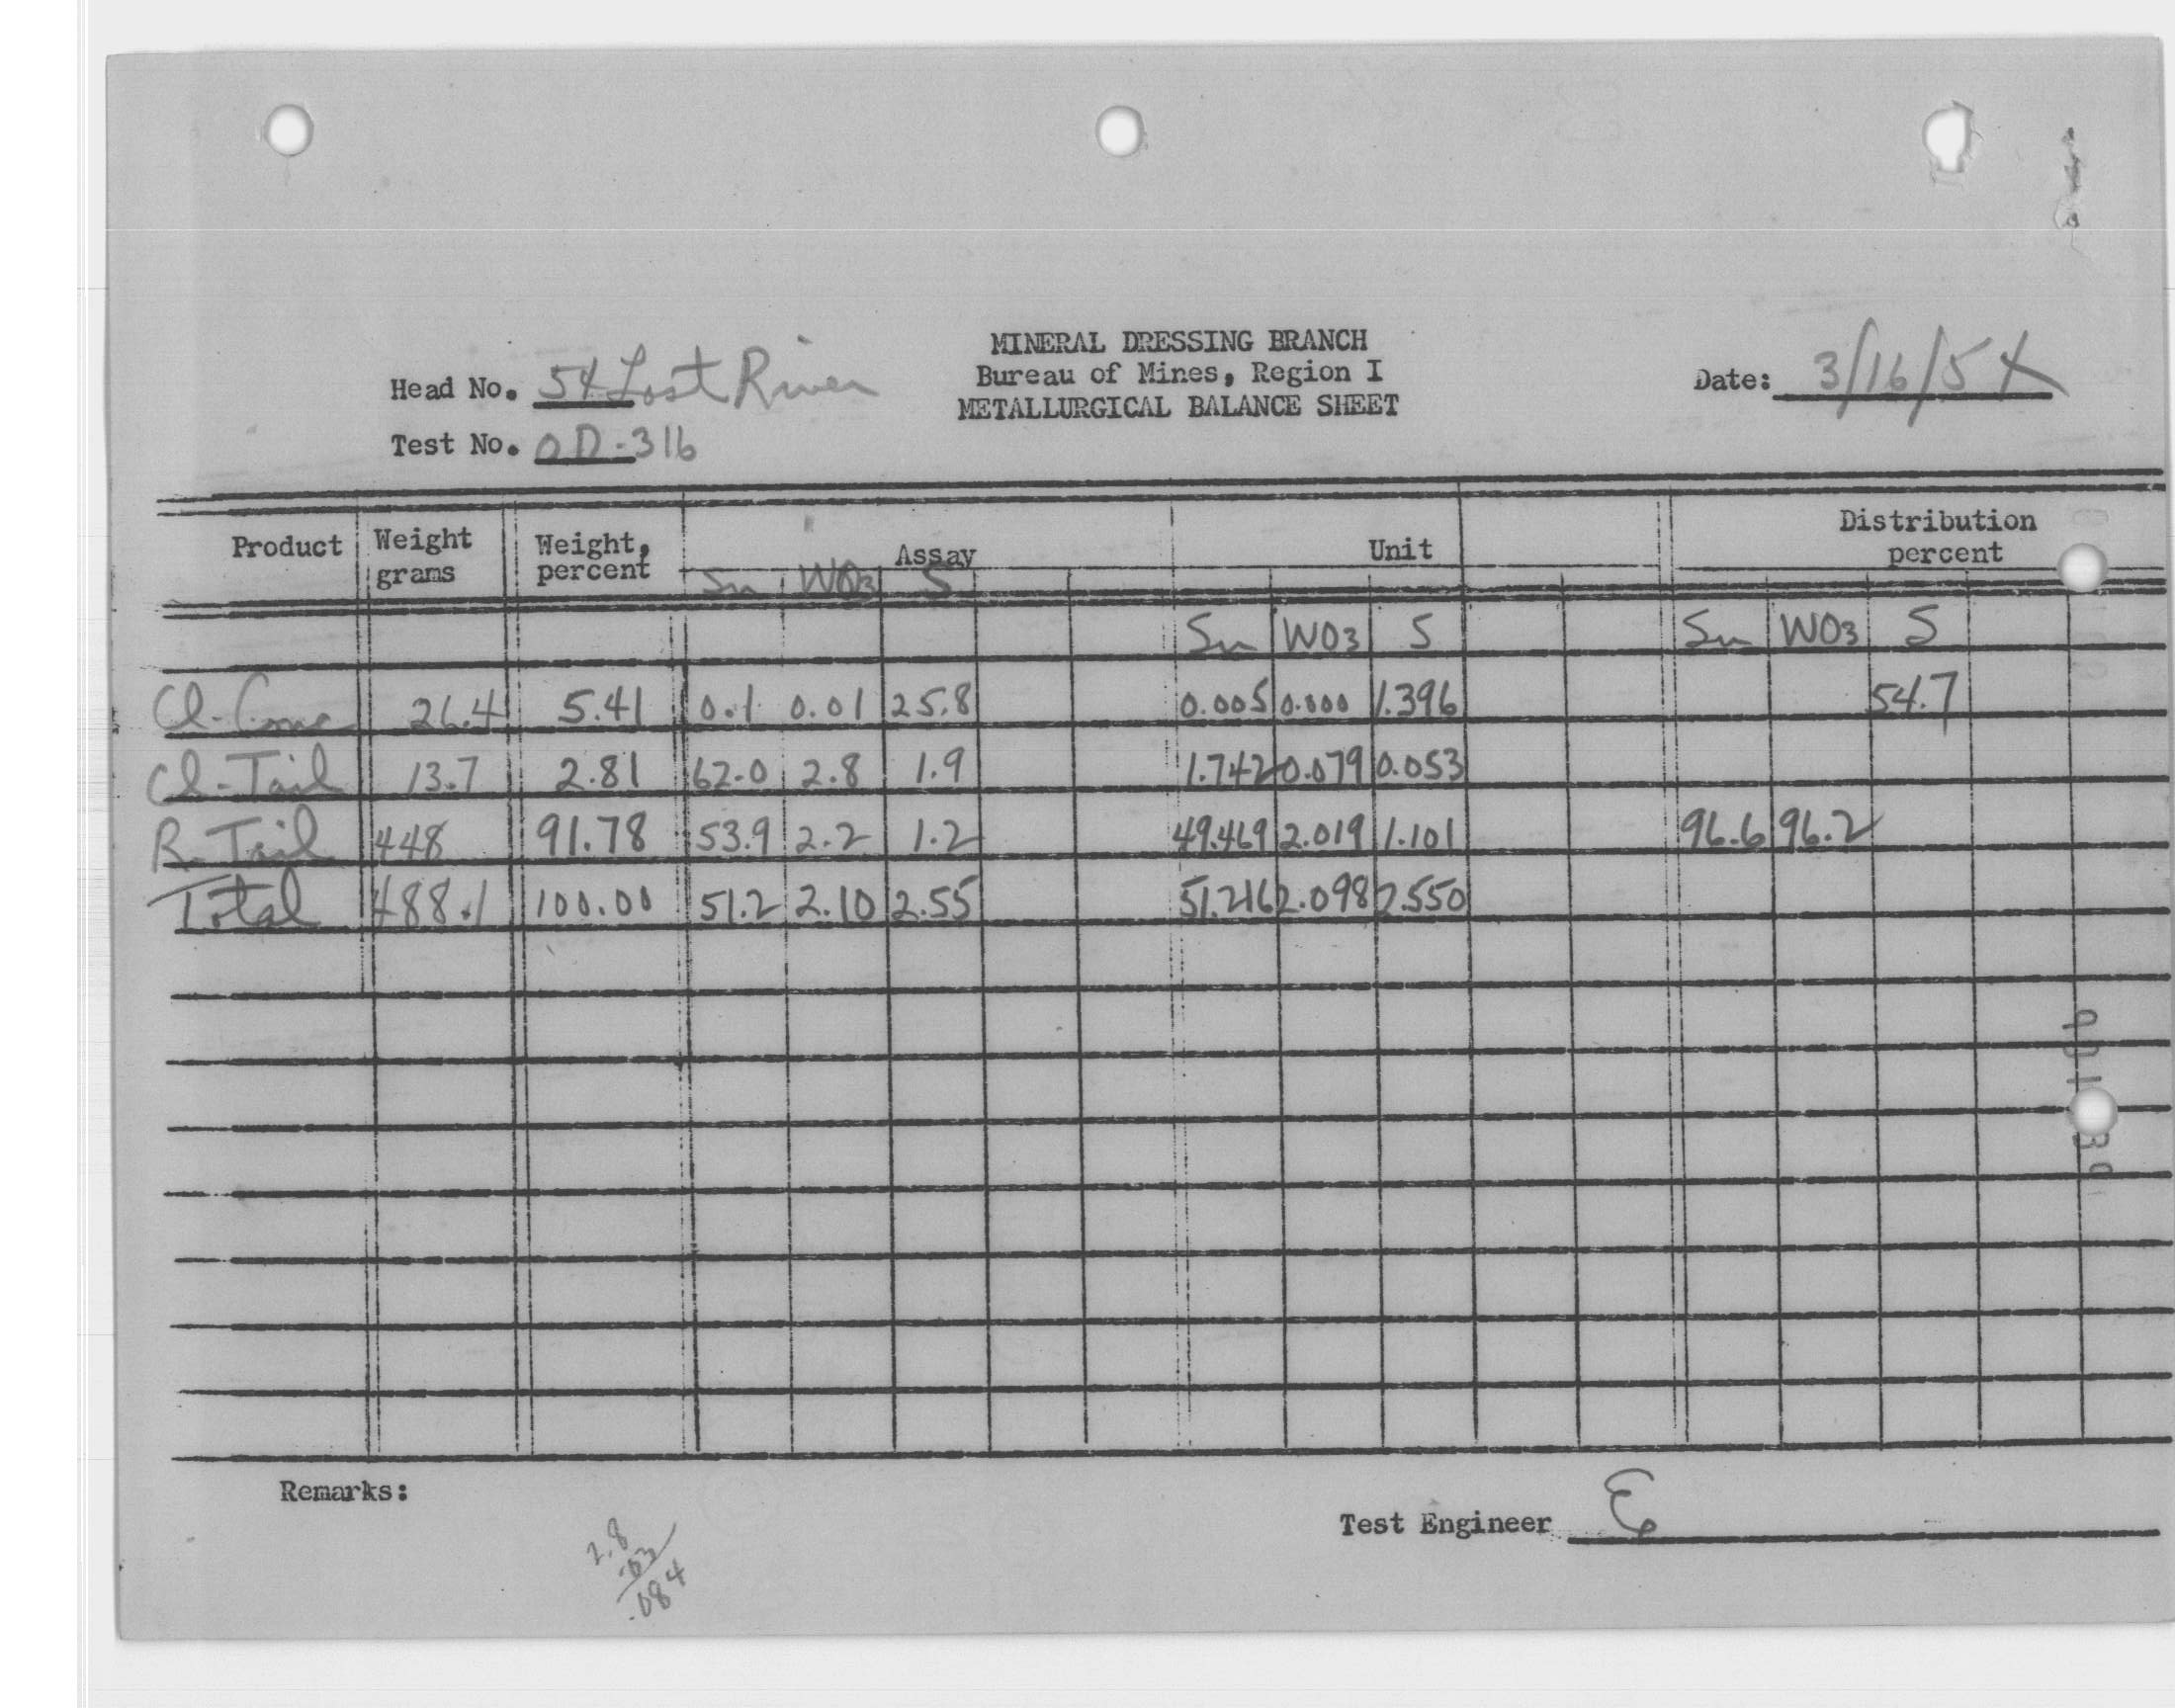 MINERAL DRESSING BRANCH
Bureau of Mines, Region I
METALLURGICAL BALANCE SHEET
Head No. 54 Lost River
Date: 3/16/54
Test No. OD-316
Product Weight grams Weight, percent Assay Unit Distribution percent
Sn WO3 S
Sn WO3 S Sn WO3 S
Cl-Conc 26.4 5.41 0.1 0.01 25.8 0.005 0.000 1.396 54.7
Cl-Tail 13.7 2.81 62.0 2.8 1.9 1.742 0.079 0.053
R-Tail 448 91.78 53.9 2.2 1.2 49.469 2.019 1.101 96.6 96.2
Total 488.1 100.00 51.2 2.10 2.55 51.216 2.098 2.550
Remarks:
Test Engineer E
2.8
.03
.084